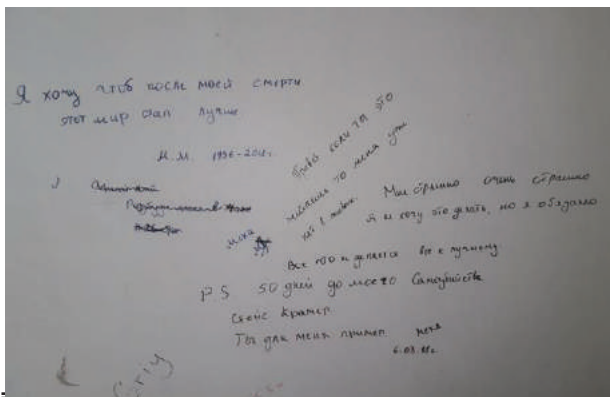 Я хочу чтоб после моей смерти
этот мир стал лучше
М.М. 1996-201
если ты это
читаешь то меня уже
нет в живых.
Мне страшно очень страшно
я не хочу это делать, но я обязана
Все что ни делается все к лучшему
P S 50 дней до моего самоубийства
Стейс Крамер
Ты для меня пример
6.03.